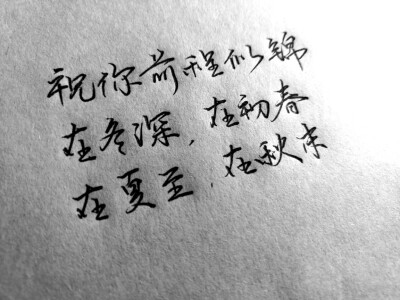 祝你前程似锦
在冬深，在初春
在夏至，在秋末